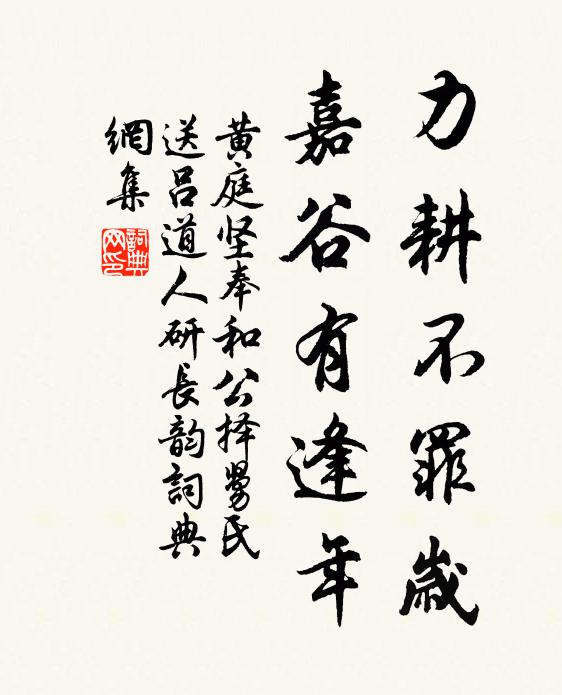 力耕不罪歲
嘉谷有逢年
黄庭坚奉和公择舅氏
送呂道人研長韵詞典
網集
詞典網印